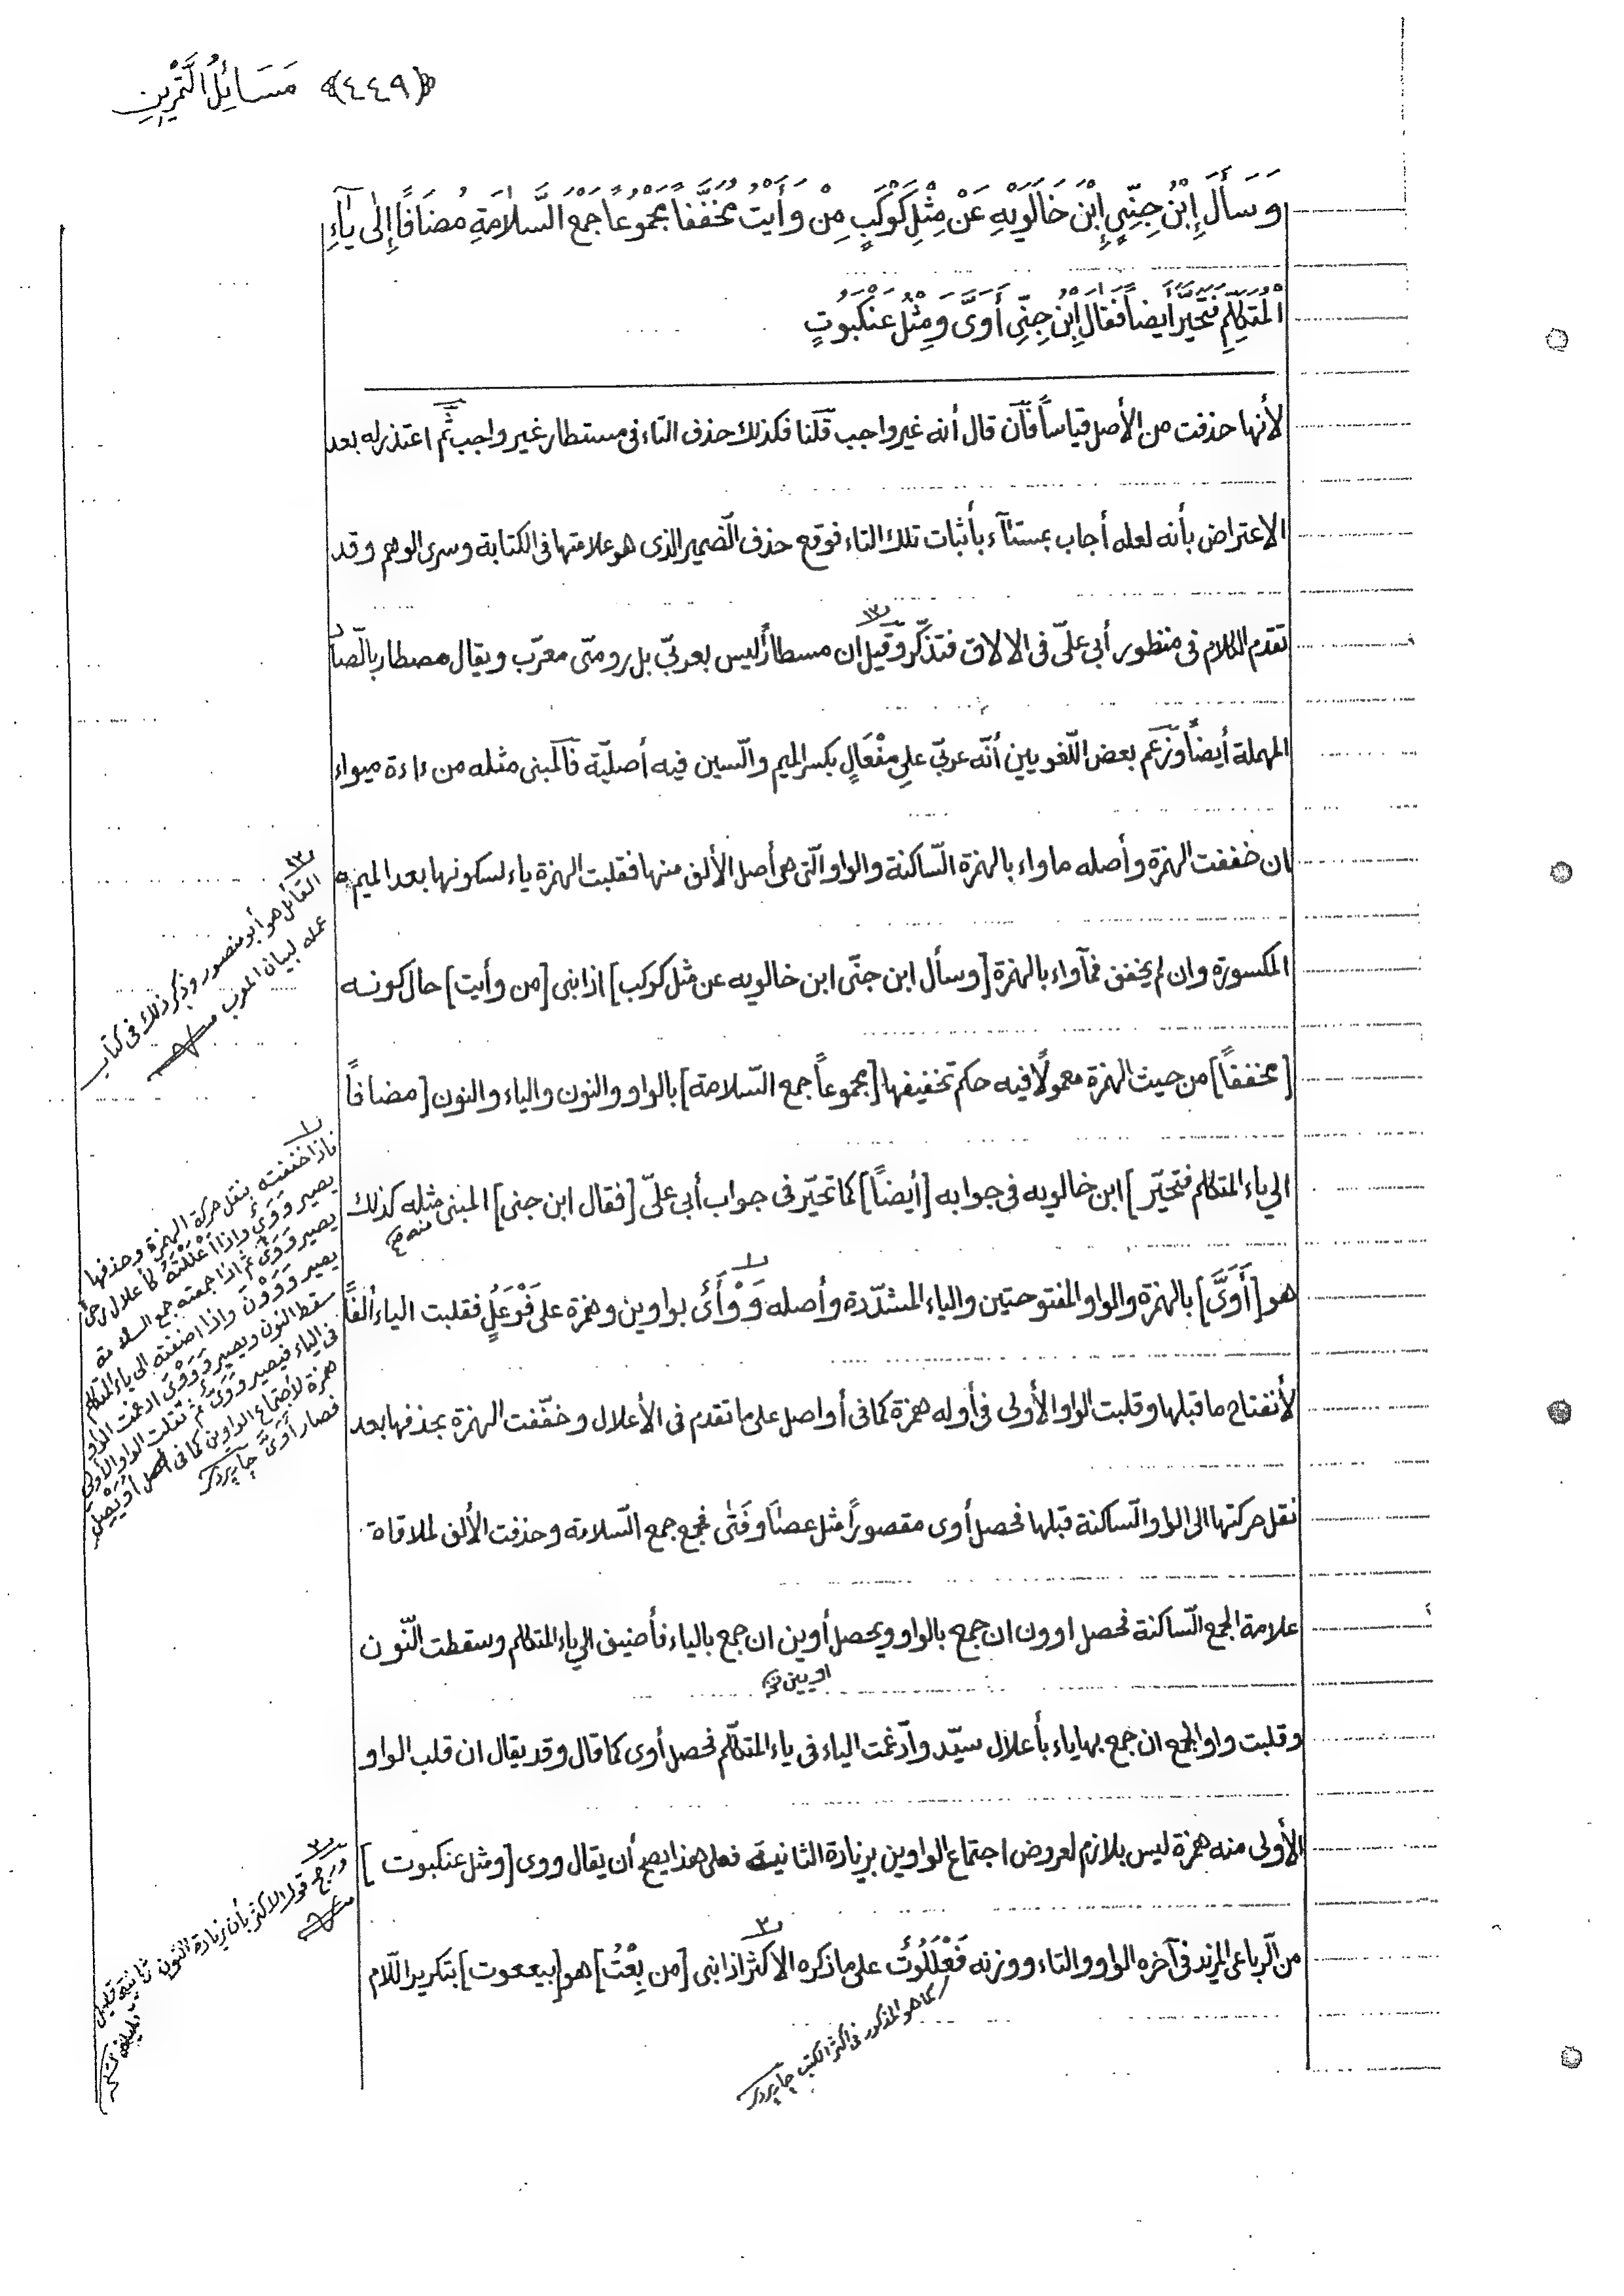 ﴿٤٤٩﴾ مَسَائِلُ التَّمْرِينِ
وَسَأَلَ إِبْنُ جِنِّي إِبْنَ خَالَوَيْهِ عَنْ مِثْلِ كَوْكَبٍ مِنْ وَأَيْتُ مُخَفَّفًا مَجْمُوعًا جَمْعَ السَّلاٰمَةِ مُضَافًا إِلٰى يَآءِ
الْمُتَكَلِّمِ فَتَحَيَّرَ أَيضاً فَقَالَ إِبْنُ جِنِّي أَوَىَّ وَمِثْلُ عَنْكَبُوتٍ
لأنها حذفت من الأصل قياساً فان قال أنه غير واجب قلنا فكذلك حذف التاء فى مستطار غير واجب ثم اعتذر له بعد
الاعتراض بأنه لعله أجاب بمستآء بأثبات تلك التاء فوقع حذف الضمير الذى هو علامتها فى الكتابة وسرى الوهم وقد
تقدم الكلام فى منظور أبى علىّ فى الالاق فتذكّر وقيل ان مسطارٌ ليس بعربىّ بل رومىّ معرّب ويقال مصطار بالصّاد
المهملة أيضاً وزعم بعض اللّغويين أنّه عربىّ على مِفْعَالٍ بكسر الميم والسّين فيه أصليّة فالمبنى مثله من ءاءة ميواء
ان خففت الهمزة وأصله ماواء بالهمزة السّاكنة والواو الّتى هى أصل الألف منها فقلبت الهمزة ياء لسكونها بعد الميم
المكسورة وان لم يخفف فمآواء بالهمزة [وسأل ابن جنّى ابن خالويه عن مثل كوكب] اذا بنى [من وأيت] حال كونه
[مخففاً] من حيث الهمزة معمولًا فيه حكم تخفيفها [مجموعاً جمع السّلامة] بالواو والنون والياء والنون [مضافاً
الى ياء المتكلم فتحيّر] ابن خالويه فى جوابه [أيضاً] كما تحيّر فى جواب أبى علىّ [فقال ابن جنى] المبنى مثله كذلك
منه
هو [أَوَىَّ] بالهمزة والواو المفتوحتين والياء المشدّدة وأصله وَوْأَىٌ بواوين وهمزة على فَوْعَلٍ فقلبت الياء ألفاً
لأنفتاح ما قبلها وقلبت الواو الأولى فى أوله همزة كما فى أواصل على ما تقدم فى الأعلال وخفّفت الهمزة بحذفها بعد
نقل حركتها الى الواو السّاكنة قبلها فحصل أوى مقصوراً مثل عصًا وفَتًى فجمع جمع السّلامة وحذفت الألف لملاقاة
علامة الجمع السّاكنة فحصل اوون ان جمع بالواو ويحصل أوين ان جمع بالياء فأضيف الى ياء المتكلم وسقطت النّون
اويين
وقلبت واو الجمع ان جمع بها ياء بأعلال سيّد وأدّغمت الياء فى ياء المتكلّم فحصل أوى كما قال وقد يقال ان قلب الواو
الأولى منه همزة ليس بلازم لعروض اجتماع الواوين بزيادة الثانية فعلى هذا يصح أن يقال ووى [ومثل عنكبوت]
من الرّباعى المزيد فى آخره الواو والتاء ووزنه فَعْلَلُوتٌ على ما ذكره الاكثر اذا بنى [من بِعْتُ] هو [بيععوت] بتكرير اللّام
كما هو المذكور فى اكثر الكتب چاپردى
القائل هو أبو منصور وذكر ذلك فى كتاب
عمله لبيان المعرب
فاذا خففته بنقل حركة الهمزة وحذفها
يصير وَوَىٌ واذا أعللته كأعلال رحى
يصير وَوًى ثم اذا جمعته جمع السلامة
يصير وَوَوْنَ واذا اضفته الى ياء المتكلم
سقط النون ويصير وَوَوْىَ ادغمت الواو
فى الياء فيصير ووىّ ثم تقلب الواو الأولى
همزة لأجتماع الواوين كما فى أصل أويصل
فصار أوىّ چاپردى
ورجح قول الاكثر بأن زيادة النون ثانية قليل